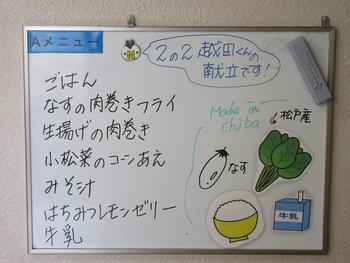 Aメニュー
2の2 越田くんの
献立です!
ごはん
なすの肉巻きフライ
生揚げの肉巻き
小松菜のコーンあえ
みそ汁
はちみつレモンゼリー
牛乳
Made in
Chiba
松戸産
なす
牛乳